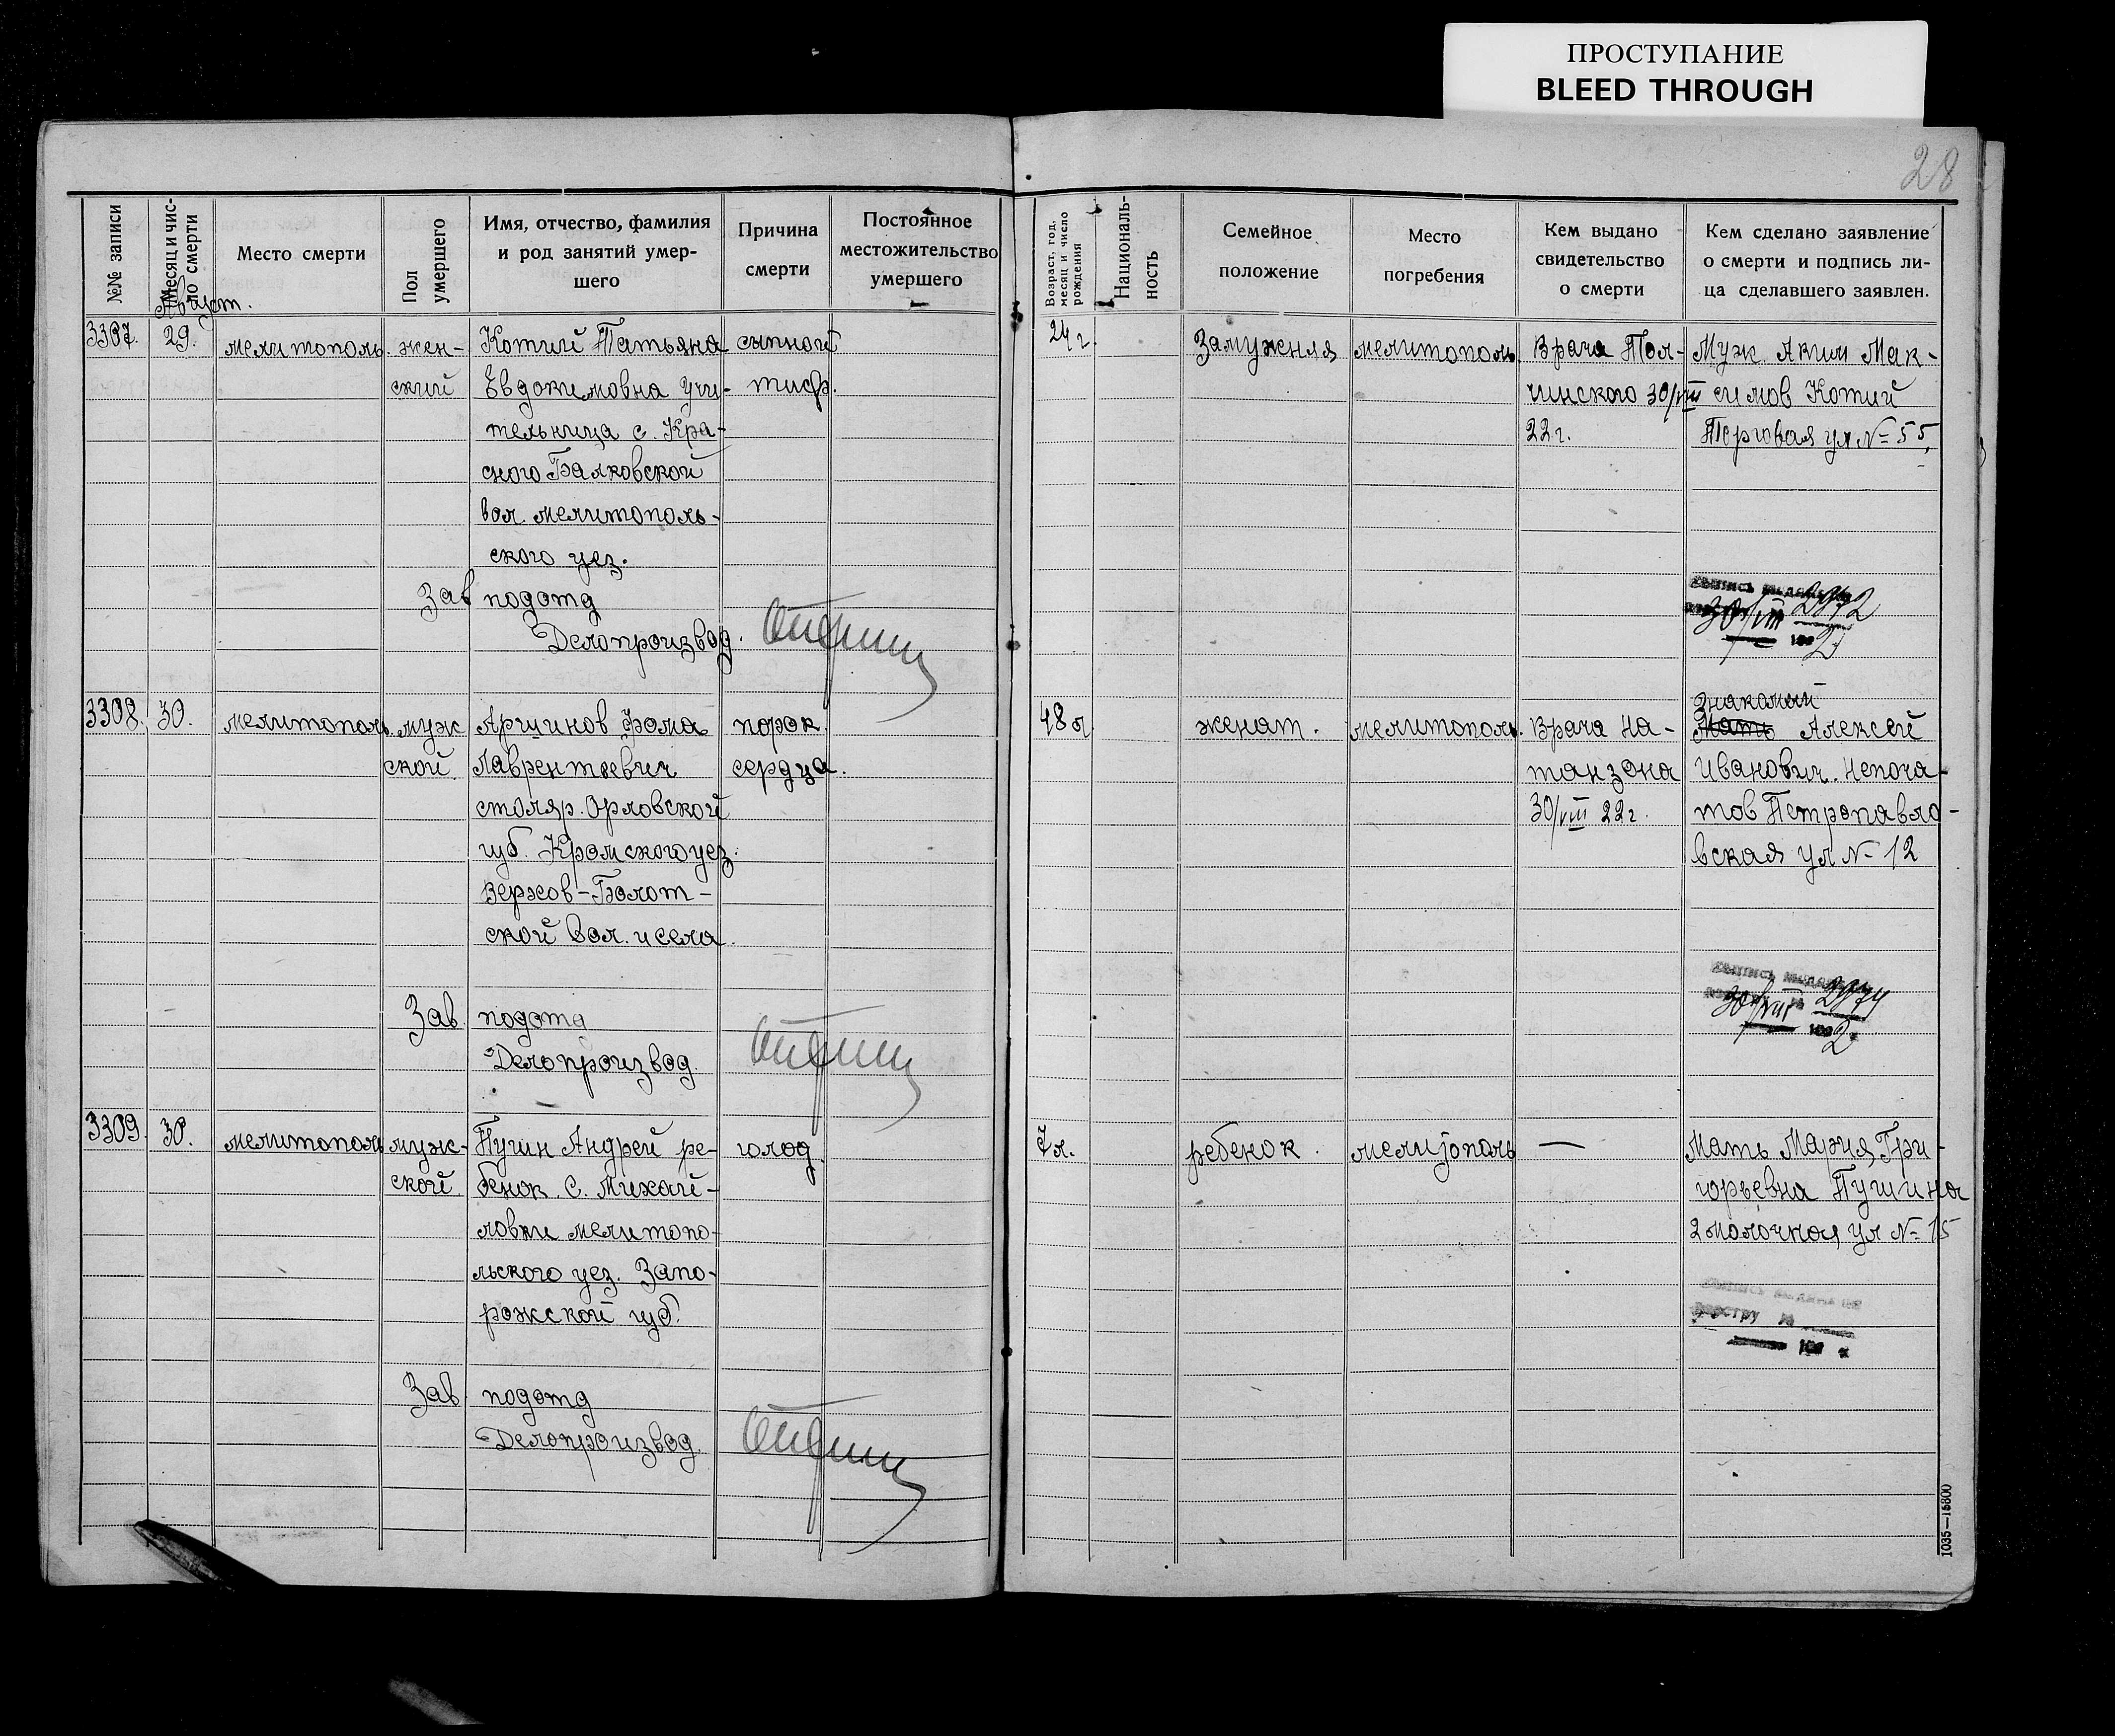 ПРОСТУПАНИЕ
BLEED THROUGH
28
№№ записи
Месяц и чис-
ло смерти
Место смерти
Пол
умершего
Имя, отчество, фамилия
и род занятий умер-
шего
Причина
смерти
Постоянное
местожительство
умершего
Возраст, год,
месяц и число
рождения
Националь-
ность
Семейное
положение
Место
погребения
Кем выдано
свидетельство
о смерти
Кем сделано заявление
о смерти и подпись ли-
ца сделавшего заявлен.
Август.
3307.
29.
мелитополь.
жен-
ский
Котий Татьяна
Евдокимовна учи-
тельница с. Кра-
сного Балковской
вол. мелитополь-
ского уез.
сыпной
тиф.
24 г
Замужняя
мелитополь.
Врача Тол-
чинского 30/VIII
22 г.
Муж Аким Мак-
симов Котий
Торговая ул № 55,
Зав подотд
Делопроизвод.
30/VIII 2972
2
3308.
30.
мелитополь.
муж
ской
Аршинов Фома
Лаврентьевич
столяр. Орловской
губ. Кромского уез.
Верхов-Болот-
ской вол. и села.
порок
сердца.
48 л
женат.
мелитополь.
Врача На-
танзона
30/VIII 22 г.
Знакомый
Мать Алексей
Иванович. Непоча-
тов Петропавло-
вская ул № 12
Зав. подотд
Делопроизвод
30/VIII 2974
2
3309.
30.
мелитополь
муж-
ской
Пугин Андрей ре-
бенок с. Михай-
ловки мелитопо-
льского уез. Запо-
рожской губ.
голод.
7 л.
ребенок.
мелитополь
—
Мать Мария Гри-
горьевна Пугина
2 молочная ул № 15
реестру №
Зав подотд
Делопроизвод.
1035—15800